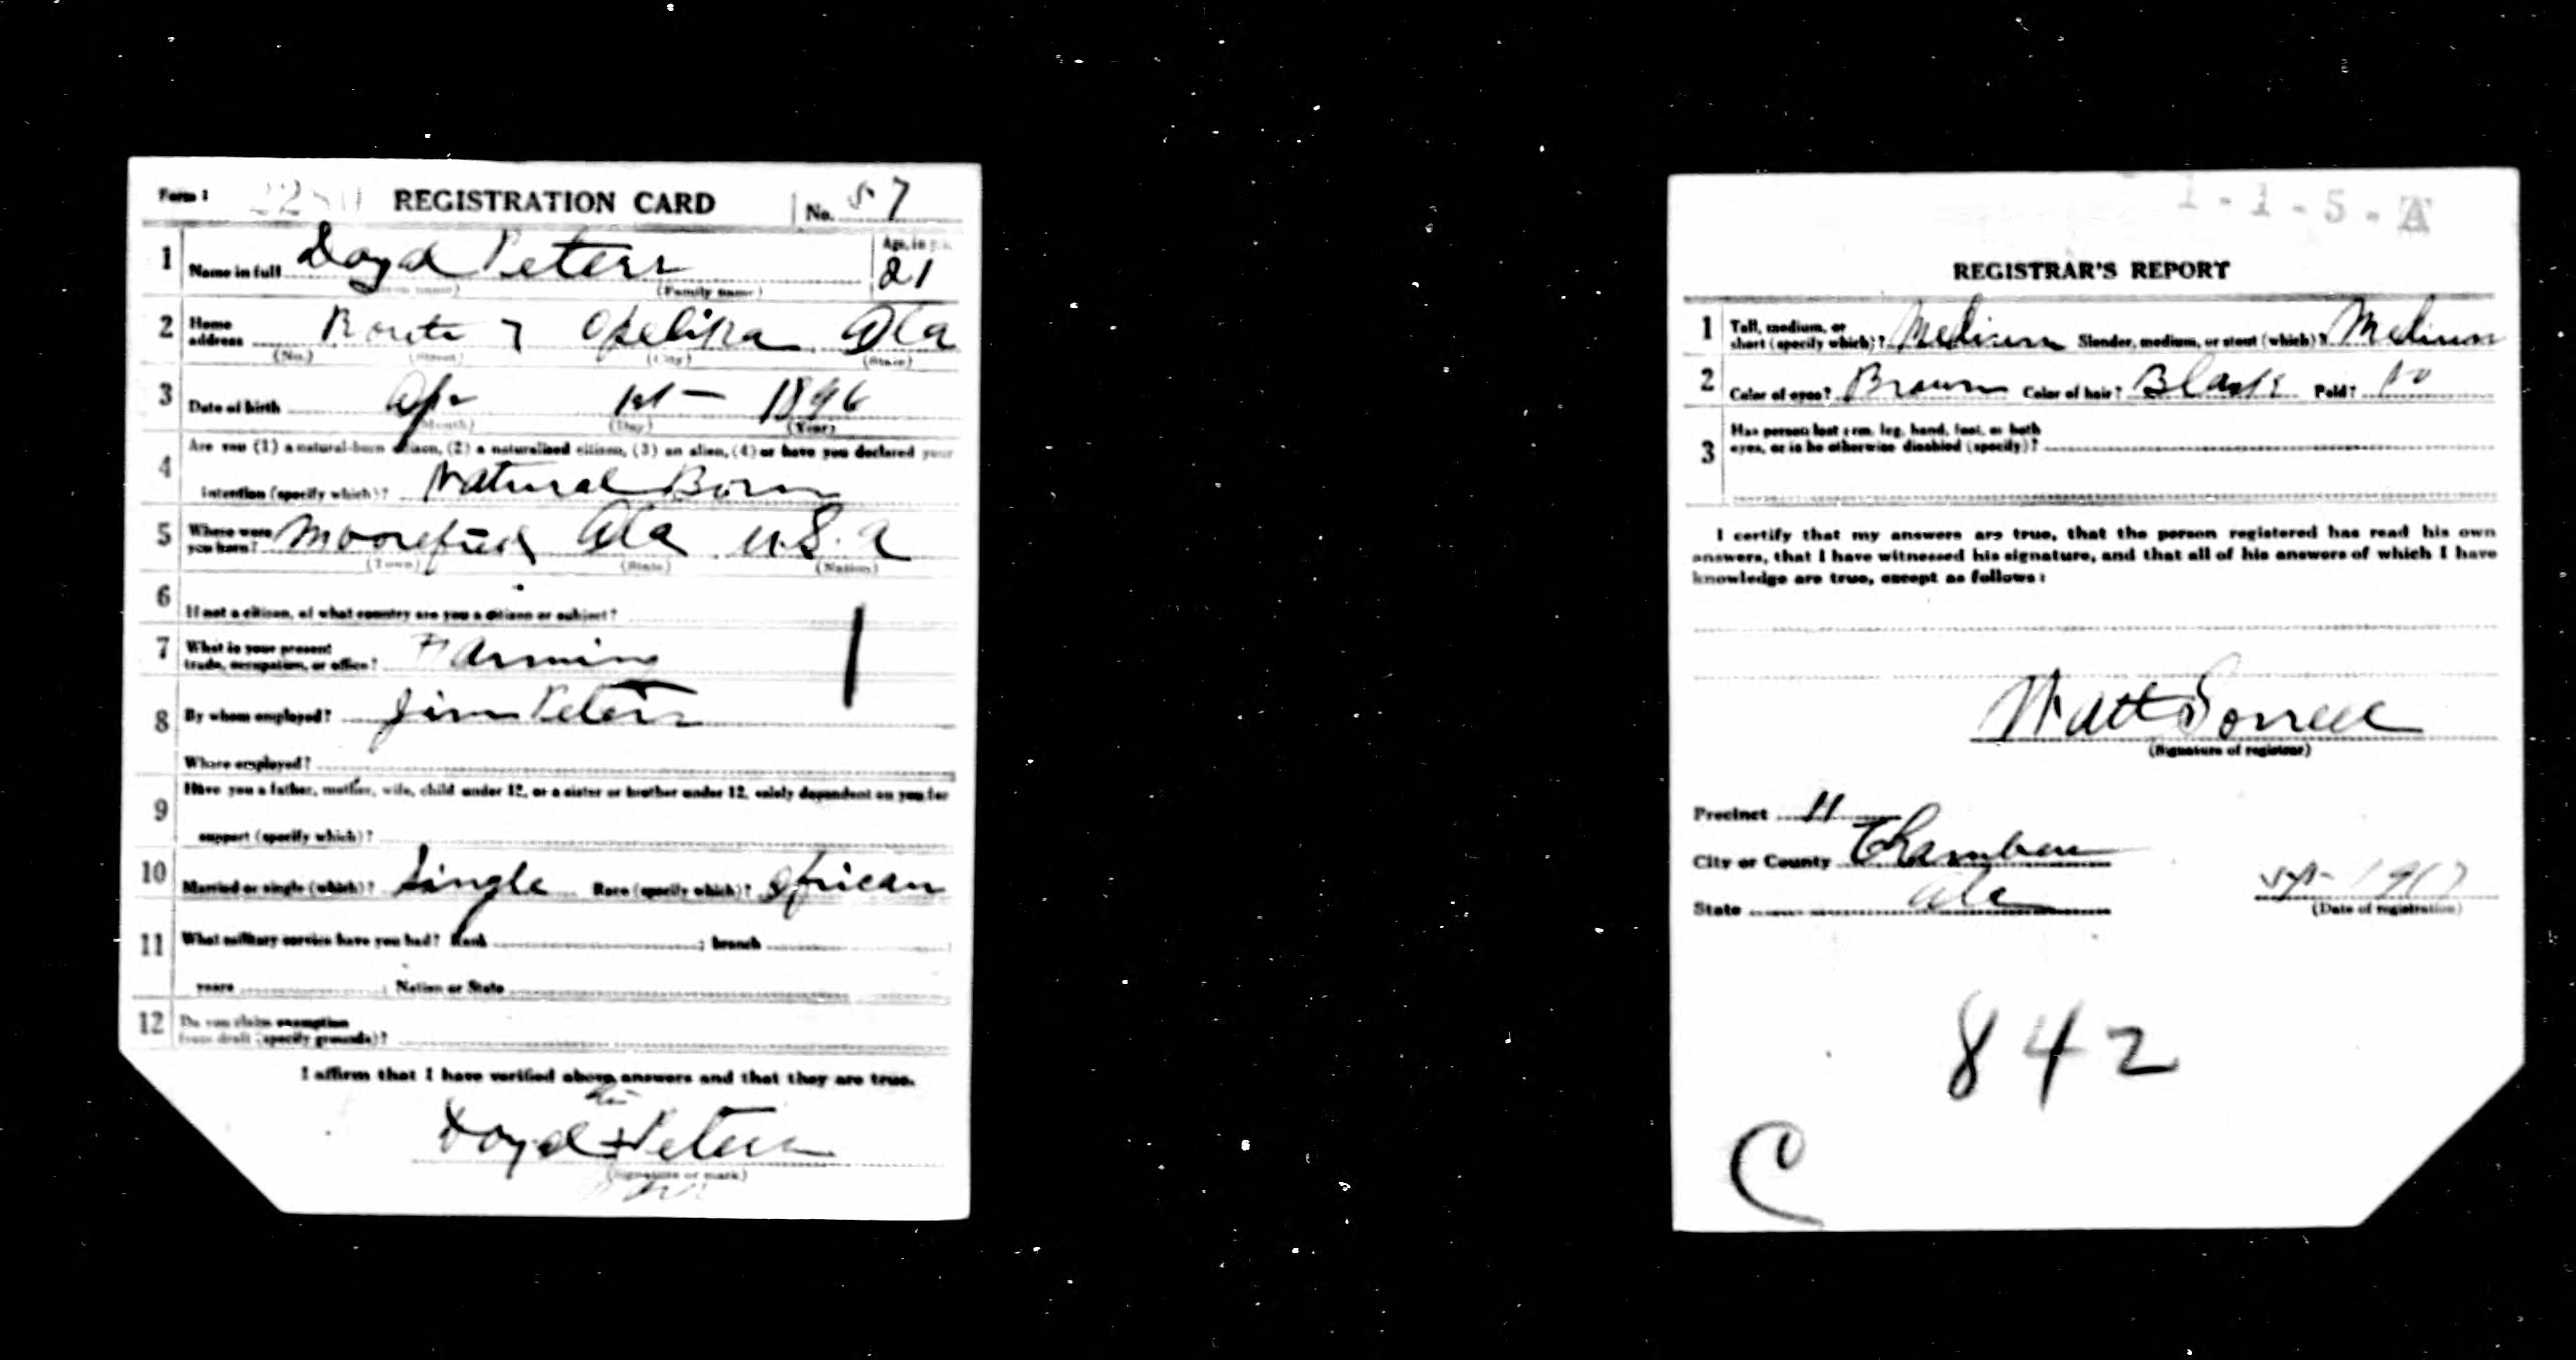 Form 1 REGISTRATION CARD No. 57
1 Name in full Loyd Peters Age, in yrs. 21
(Family name)
2 Home address Route 7 Opelika Ala
(No.) (Street) (City) (State)
3 Date of birth Apr 1st – 1896
(Month) (Day) (Year)
4 Are you (1) a natural-born citizen, (2) a naturalized citizen, (3) an alien, (4) or have you declared your
intention (specify which)? Natural Born
5 Where were you born? Moorefield Ala U.S.a
(Town) (State) (Nation)
6 If not a citizen, of what country are you a citizen or subject?
7 What is your present trade, occupation, or office? Farming
8 By whom employed? Jim Peters
Where employed?
9 Have you a father, mother, wife, child under 12, or a sister or brother under 12, solely dependent on you for
support (specify which)?
10 Married or single (which)? Single Race (specify which)? African
11 What military service have you had? Rank ; branch
years ; Nation or State
12 Do you claim exemption from draft (specify grounds)?
I affirm that I have verified above answers and that they are true.
his
Loyd + Peters
(Signature or mark)
1-1-5-A
REGISTRAR'S REPORT
1 Tall, medium, or short (specify which)? Medium Slender, medium, or stout (which)? Medium
2 Color of eyes? Brown Color of hair? Black Bald? no
3 Has person lost arm, leg, hand, foot, or both
eyes, or is he otherwise disabled (specify)?
I certify that my answers are true, that the person registered has read his own
answers, that I have witnessed his signature, and that all of his answers of which I have
knowledge are true, except as follows:
Watt Sorrell
(Signature of registrar)
Precinct 11
City or County Chambers
State Ala
(Date of registration)
842
C